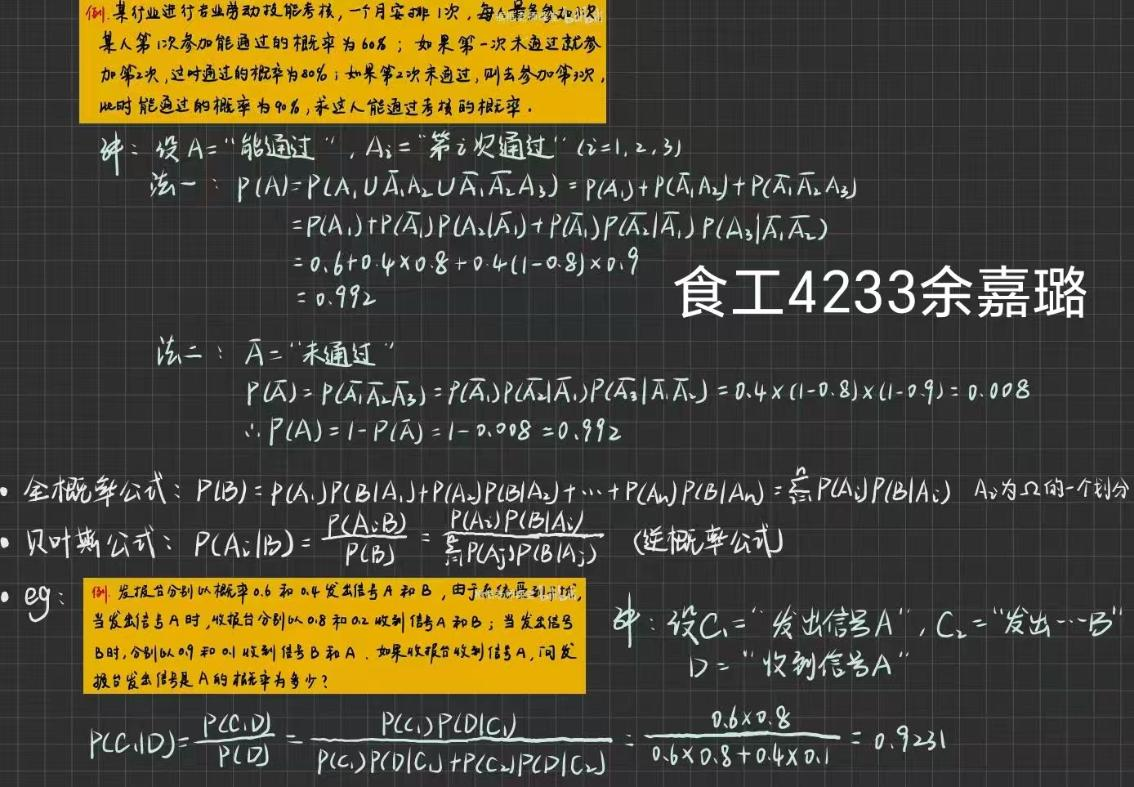 例. 某行业进行专业劳动技能考核, 一个月安排1次, 每人最多参加3次
某人第1次参加能通过的概率为60%; 如果第一次未通过就参
加第2次, 这时通过的概率为80%; 如果第2次未通过, 则去参加第3次,
此时能通过的概率为90%, 求这人能通过考核的概率.
解: 设A="能通过", Aᵢ="第i次通过" (i=1, 2, 3)
法一: P(A)=P(A₁∪A̅₁A₂∪A̅₁A̅₂A₃)=P(A₁)+P(A̅₁A₂)+P(A̅₁A̅₂A₃)
=P(A₁)+P(A̅₁)P(A₂|A̅₁)+P(A̅₁)P(A̅₂|A̅₁)P(A₃|A̅₁A̅₂)
=0.6+0.4×0.8+0.4(1-0.8)×0.9
=0.992
食工4233余嘉璐
法二: A̅="未通过"
P(A̅)=P(A̅₁A̅₂A̅₃)=P(A̅₁)P(A̅₂|A̅₁)P(A̅₃|A̅₁A̅₂)=0.4×(1-0.8)×(1-0.9)=0.008
∴P(A)=1-P(A̅)=1-0.008=0.992
• 全概率公式: P(B)=P(A₁)P(B|A₁)+P(A₂)P(B|A₂)+⋯+P(Aₙ)P(B|Aₙ)=∑ⁿᵢ₌₁P(Aᵢ)P(B|Aᵢ) Aᵢ为Ω的一个划分
• 贝叶斯公式: P(Aᵢ|B)=P(AᵢB)/P(B)=P(Aᵢ)P(B|Aᵢ)/∑P(Aⱼ)P(B|Aⱼ) (逆概率公式)
• eg:
例. 发报台分别以概率0.6和0.4发出信号A和B, 由于系统受到干扰,
当发出信号A时, 收报台分别以0.8和0.2收到信号A和B; 当发出信号
B时, 分别以0.9和0.1收到信号B和A. 如果收报台收到信号A, 问发
报台发出信号是A的概率为多少?
解: 设C₁="发出信号A", C₂="发出⋯B"
D="收到信号A"
P(C₁|D)=P(C₁D)/P(D)=P(C₁)P(D|C₁)/P(C₁)P(D|C₁)+P(C₂)P(D|C₂)=0.6×0.8/0.6×0.8+0.4×0.1=0.9231